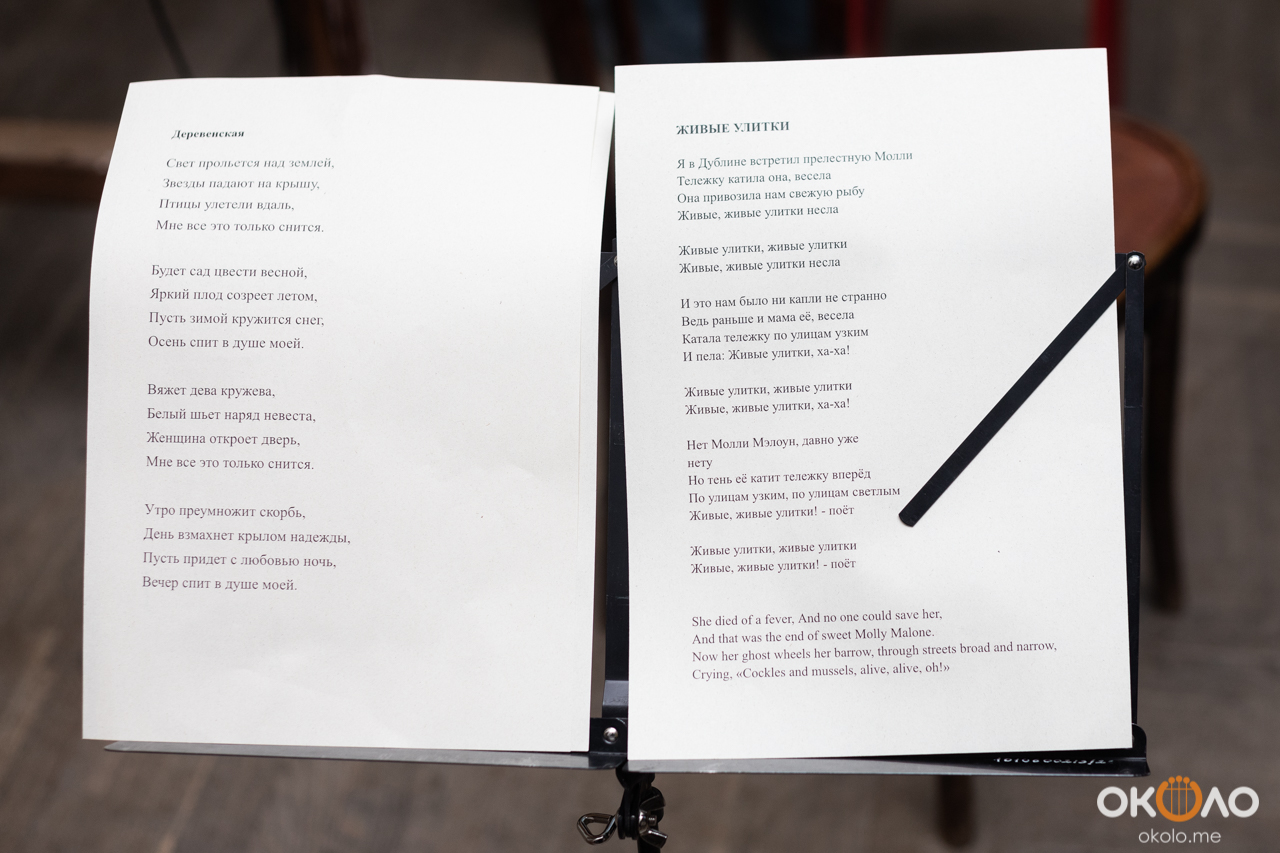 Деревенская
Свет прольется над землей,
Звезды падают на крышу,
Птицы улетели вдаль,
Мне все это только снится.
Будет сад цвести весной,
Яркий плод созреет летом,
Пусть зимой кружится снег,
Осень спит в душе моей.
Вяжет дева кружева,
Белый шьет наряд невеста,
Женщина откроет дверь,
Мне все это только снится.
Утро преумножит скорбь,
День взмахнет крылом надежды,
Пусть придет с любовью ночь,
Вечер спит в душе моей.
ЖИВЫЕ УЛИТКИ
Я в Дублине встретил прелестную Молли
Тележку катила она, весела
Она привозила нам свежую рыбу
Живые, живые улитки несла
Живые улитки, живые улитки
Живые, живые улитки несла
И это нам было ни капли не странно
Ведь раньше и мама её, весела
Катала тележку по улицам узким
И пела: Живые улитки, ха-ха!
Живые улитки, живые улитки
Живые, живые улитки, ха-ха!
Нет Молли Мэлоун, давно уже
нету
Но тень её катит тележку вперёд
По улицам узким, по улицам светлым
Живые, живые улитки! - поёт
Живые улитки, живые улитки
Живые, живые улитки! - поёт
She died of a fever, And no one could save her,
And that was the end of sweet Molly Malone.
Now her ghost wheels her barrow, through streets broad and narrow,
Crying, «Cockles and mussels, alive, alive, oh!»
ОКОЛО
okolo.me